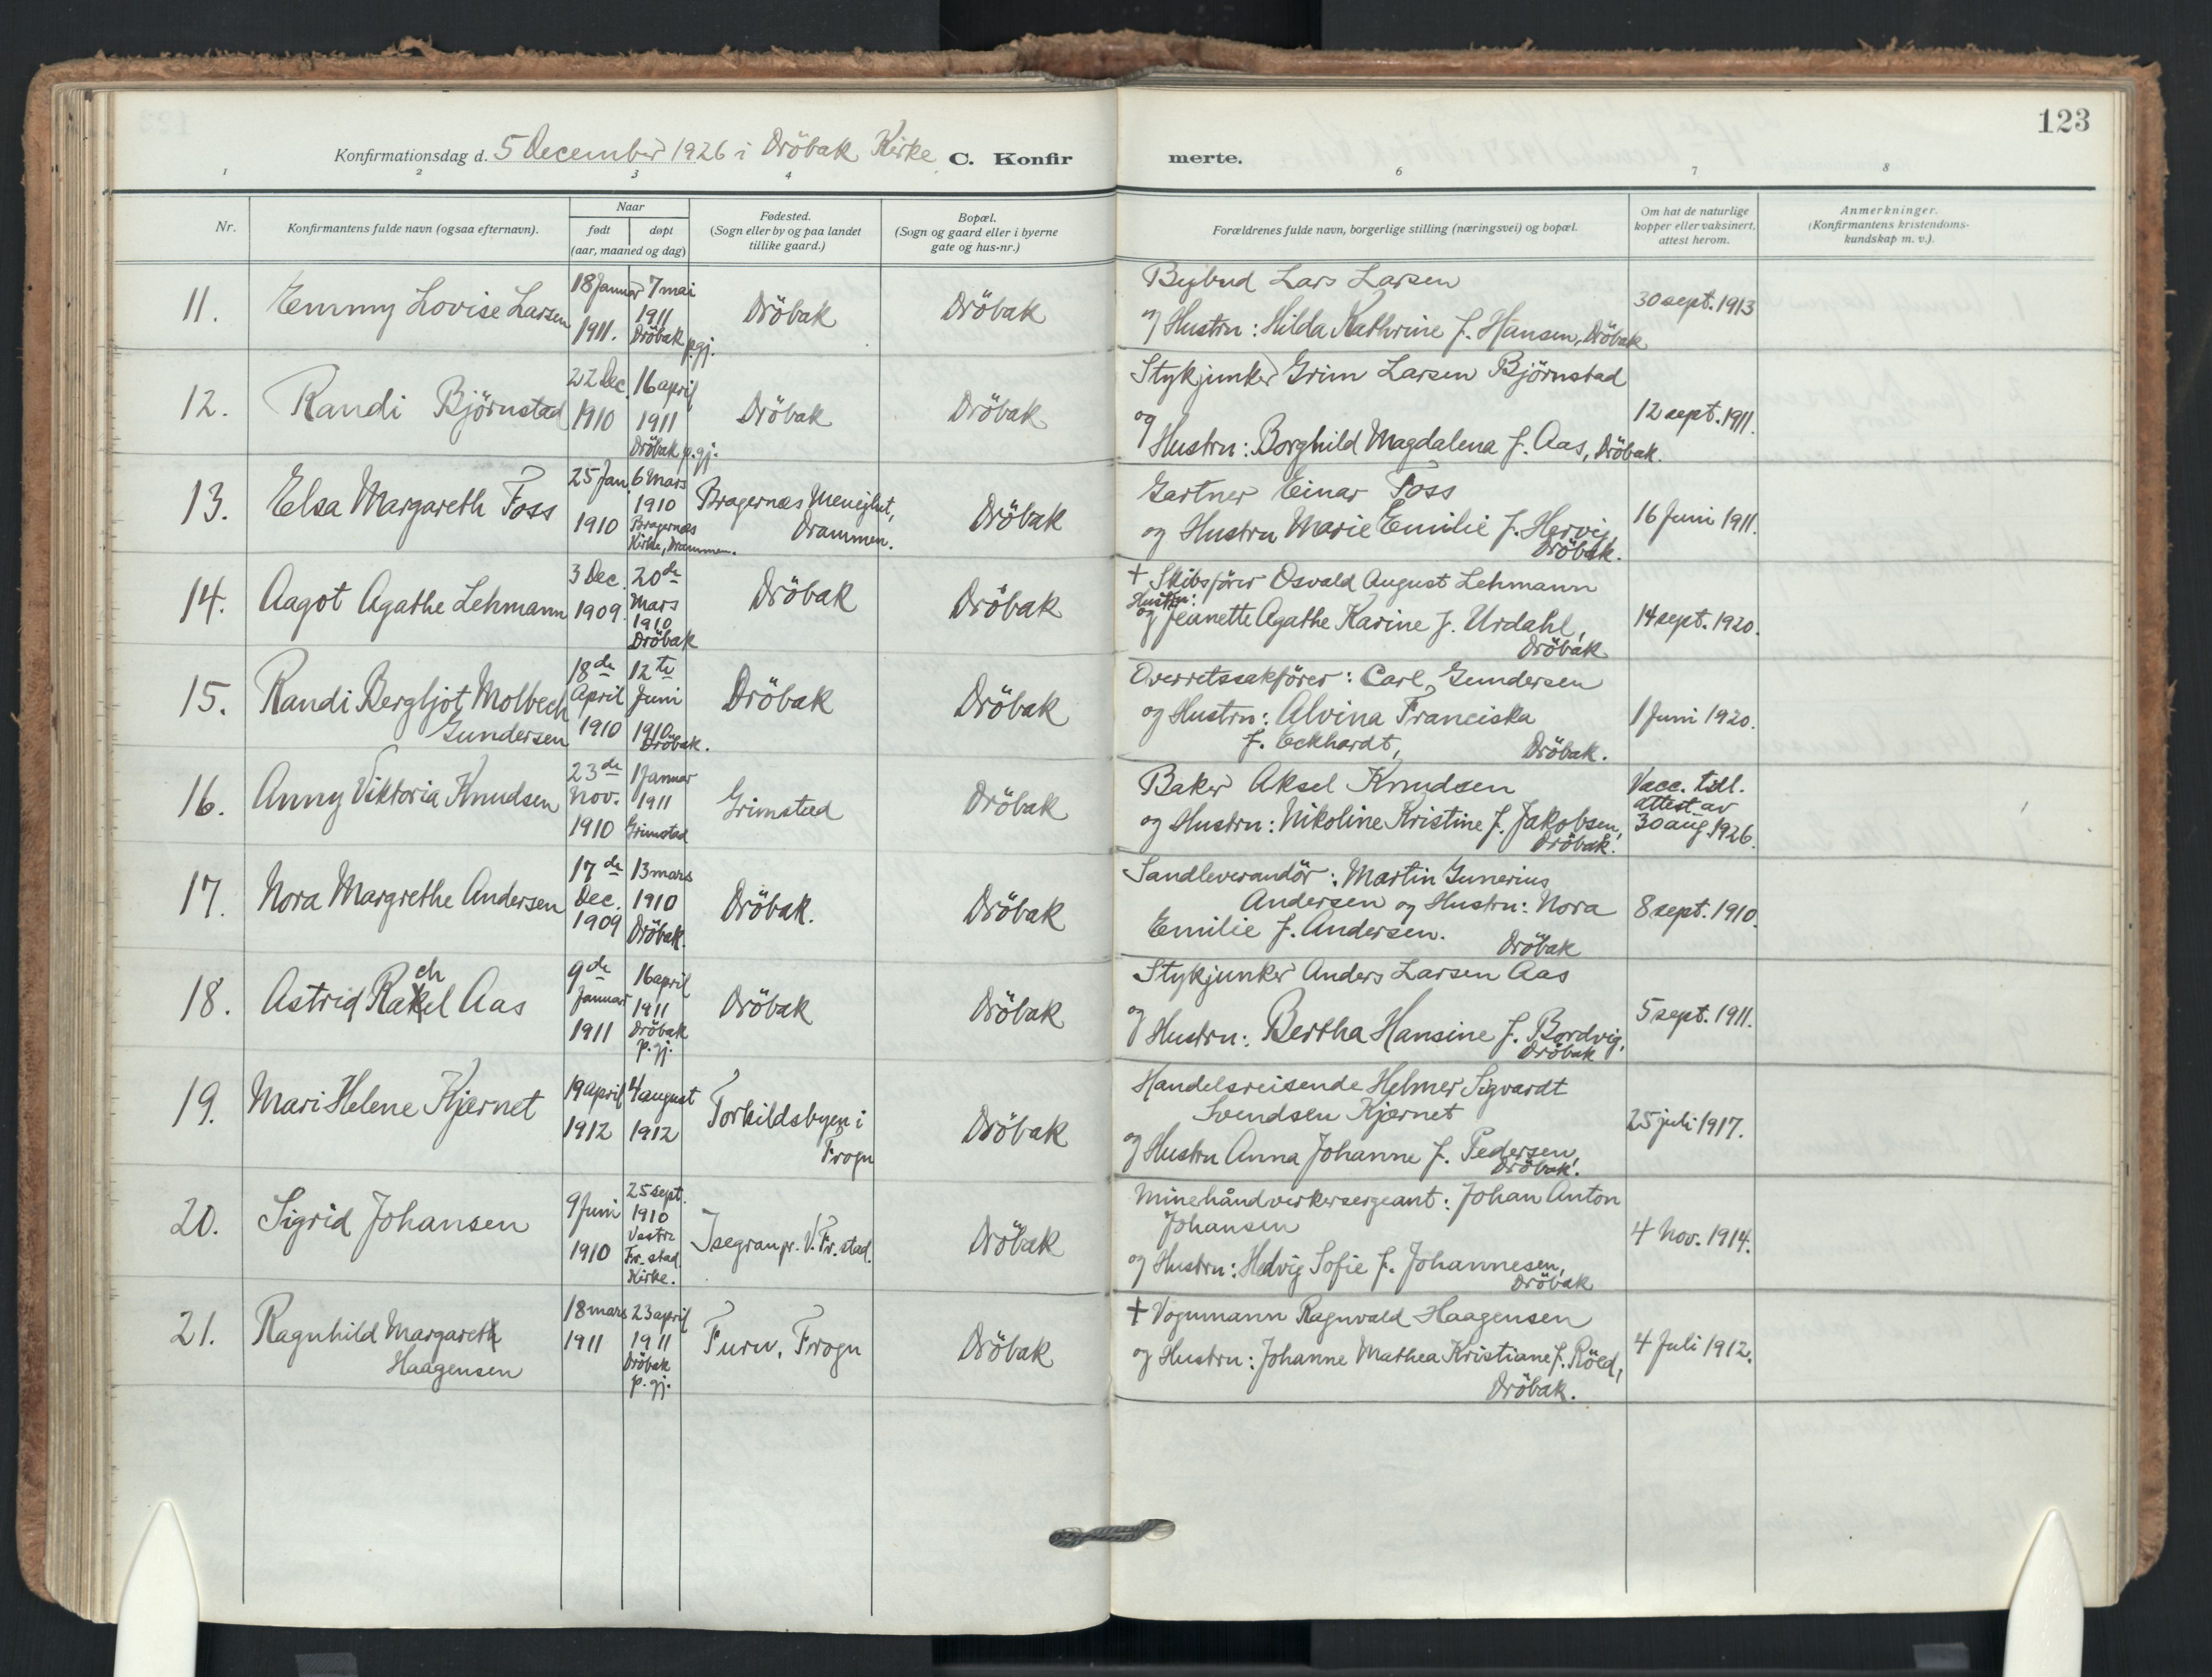 123
Konfirmationsdag d. 5 December 1926 i Dröbak Kirke C. Konfir
merte.
1 2 3 4 6 7 8
Nr.
Konfirmantens fulde navn (ogsaa efternavn).
Naar
født døpt
(aar, maaned og dag)
Fødested.
(Sogn eller by og paa landet
tillike gaard.)
Bopæl.
(Sogn og gaard eller i byerne
gate og hus-nr.)
Forældrenes fulde navn, borgerlige stilling (næringsvei) og bopæl.
Om hat de naturlige
kopper eller vaksinert,
attest herom.
Anmerkninger.
(Konfirmantens kristendoms-
kundskap m. v.).
11.
Emmy Lovise Larsen
18 Januar
1911.
7 mai
1911
Dröbak p.gj.
Dröbak
Dröbak
Bybud Lars Larsen
og Hustru: Hilda Kathrine f. Hansen, Dröbak
30 sept. 1913
12.
Randi Björnstad
22 Dec.
1910
16 april
1911
Dröbak p.gj.
Dröbak
Dröbak
Stykjunker Grim Larsen Björnstad
og
Hustru: Borghild Magdalena f. Aas, Dröbak.
12 sept. 1911.
13.
Elsa Margareth Foss
25 Jan.
1910
6 Mars
1910
Bragernæs
Kirke, Drammen.
Bragernæs Menighet,
Drammen.
Dröbak
Gartner Einar Foss
og Hustru Marie Emilie f. Hervig,
Dröbak.
16 Juni 1911.
14.
Aagot Agathe Lehmann
3 Dec.
1909.
20de
Mars
1910
Dröbak
Dröbak
Dröbak
+ Skibsförer Osvald August Lehmann
Hustru:
og Jeanette Agathe Karine f. Urdahl,
Dröbak
14 sept. 1920.
15.
Randi Bergljot Molbech
Gundersen
18de
April
1910
12te
Juni
1910
Dröbak.
Dröbak
Dröbak
Overretssakförer: Carl Gundersen
og Hustru: Alvina Franciska
f. Eckhardt,
Dröbak.
1 Juni 1920.
16.
Anny Viktoria Knudsen
23de
Nov.
1910
1 Januar
1911
Grimstad
Grimstad
Dröbak
Baker Aksel Knudsen
og Hustru: Nikoline Kristine f. Jakobsen,
Dröbak.
Vacc. tidl.
attest av
30 aug. 1926.
17.
Nora Margrethe Andersen
17de
Dec.
1909
13 mars
1910
Dröbak.
Dröbak.
Dröbak
Sandleverandör: Martin Gunerius
Andersen og Hustru: Nora
Emilie f. Andersen.
Dröbak
8 sept. 1910.
18.
ch
Astrid Rakel Aas
9de
Januar
1911
16 april
1911
Dröbak
p. gj.
Dröbak
Dröbak
Stykjunker Anders Larsen Aas
og
Hustru: Bertha Hansine f. Bordvig,
Dröbak
5 sept. 1911.
19.
Mari Helene Kjærnet
19 april
1912
4 august
1912
Torkildsbyen i
Frogn
Dröbak
Handelsreisende Helmer Sigvardt
Svendsen Kjærnet
og Hustru Anna Johanne f. Pedersen,
Dröbak.
25 juli 1917.
20.
Sigrid Johansen
9 Juni
1910
25 sept.
1910
Vestre
Fr. stad.
Kirke.
Isegran pr. V. Fr. stad.
Dröbak
Minehåndverkersergeant: Johan Anton
Johansen
og Hustru: Hedvig Sofie f. Johannesen,
Dröbak
4 Nov. 1914.
21.
Ragnhild Margareth
Haagensen
18 mars
1911
23 april
1911
Dröbak
p. gj.
Furu, Frogn
Dröbak
+ Vognmann Ragnvald Haagensen
og Hustru: Johanne Mathea Kristiane f. Röed,
Dröbak.
4 Juli 1912.